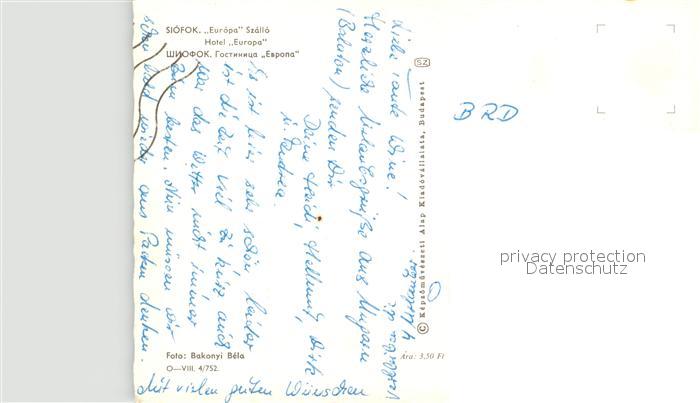 SIÓFOK. „Európa" Szálló
Hotel „Europa"
ШИОФОК. Гостиница „Европа"
SZ
BRD
Liebe Tante Wine!
Herzliche Urlaubsgrüße aus Ungarn
(Balaton) senden Dir
Deine Heidi, Hellmut, Dirk
u. Andrea.
Es ist hier sehr schön leider
ist die Zeit viel zu kurz auch
war das Wetter nicht immer
am besten. Nun müssen wir
schon bald wieder ans Packen denken.
Mit vielen guten Wünschen
© Képzőművészeti Alap Kiadóvállalata, Budapest
Ára: 3,50 Ft
Foto: Bakonyi Béla
O—VIII. 4/752.
privacy protection
Datenschutz